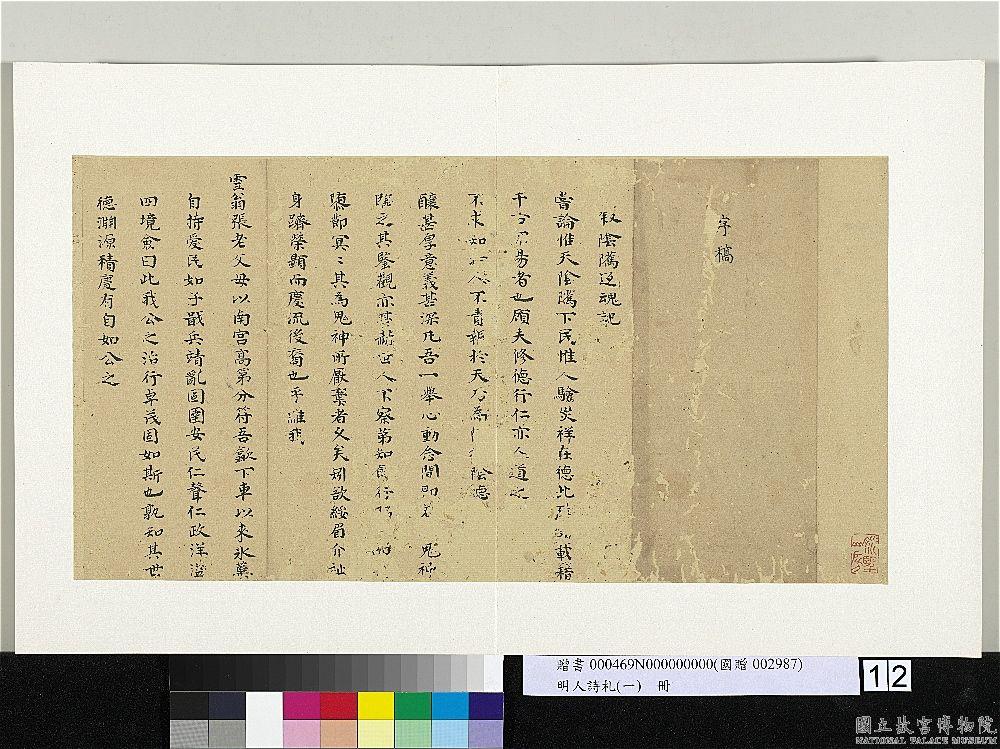 字稿
敘陰隲返魂記
嘗論惟天陰隲下民惟人驗災祥在德此載籍
千古不易者也顧夫修德行仁亦人道之
不求知於人不責報於天乃為陰德
釀甚厚意義甚深凡吾一舉心動念間即若鬼神
臨之其鑒觀亦甚人不察第知
陳節冥〻其為鬼神所厭棄者久矣矧欲綏眉介祉
身躋榮顯而慶流後裔也乎維我
雲翁張老父母以南宮高第分符吾歙下車以來氷蘗
自持愛民如子戢兵靖亂固圉安民仁聲仁政洋溢
四境僉曰此我公之治行卓茂固如斯也孰知其世
德淵源積慶有自如公之
贈書 000469N000000000(國贈 002987)
明人詩札(一) 冊
12
國立故宮博物院
NATIONAL PALACE MUSEUM